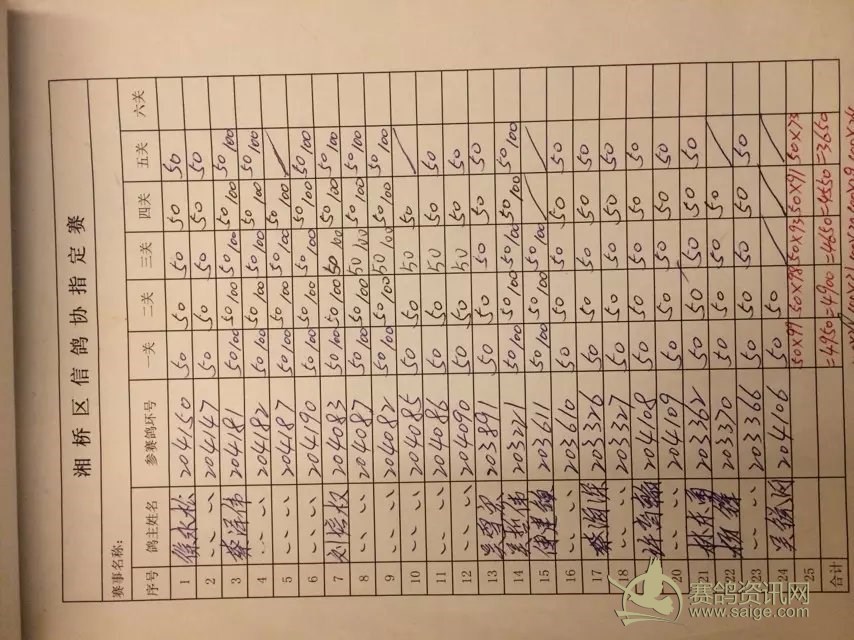 湘桥区信鸽协指定赛
赛事名称:
序号 鸽主姓名 参赛鸽环号 一关 二关 三关 四关 五关 六关
1 204150 50 50 50 50 50
2 〃 204147 50 50 50 50 50
3 204181 50/100 50/100 50/100 50/100 50/100
4 〃 204182 50/100 50/100 50/100 50/100 50/100
5 〃 204187 50/100 50/100 50/100 50/100
6 〃 204190 50/100 50/100 50/100 50/100 50/100
7 204083 50/100 50/100 50/100 50/100 50/100
8 〃 204087 50/100 50/100 50/100 50/100 50/100
9 〃 204082 50/100 50/100 50/100 50/100 50/100
10 〃 204085 50 50 50 50
11 〃 204086 50 50 50 50 50
12 〃 204090 50 50 50 50 50
13 203891 50 50 50 50 50
14 203221 50/100 50/100 50/100 50/100 50/100
15 203611 50/100 50/100 50/100
16 〃 203610 50 50 50 50 50
17 203326 50 50 50 50 50
18 〃 203327 50 50 50 50 50
19 204108 50 50 50 50 50
20 〃 204109 50 50 50 50 50
21 203362 50 50 50 50 50
22 203370 50 50 50 50
23 〃 203366 50 50 50 50 50
24 204106 50 50
25 50×99 50×98 50×93 50×91 50×73
合计 =4950 =4900 =4650 =4550 =3650
赛鸽资讯网
www.saige.com